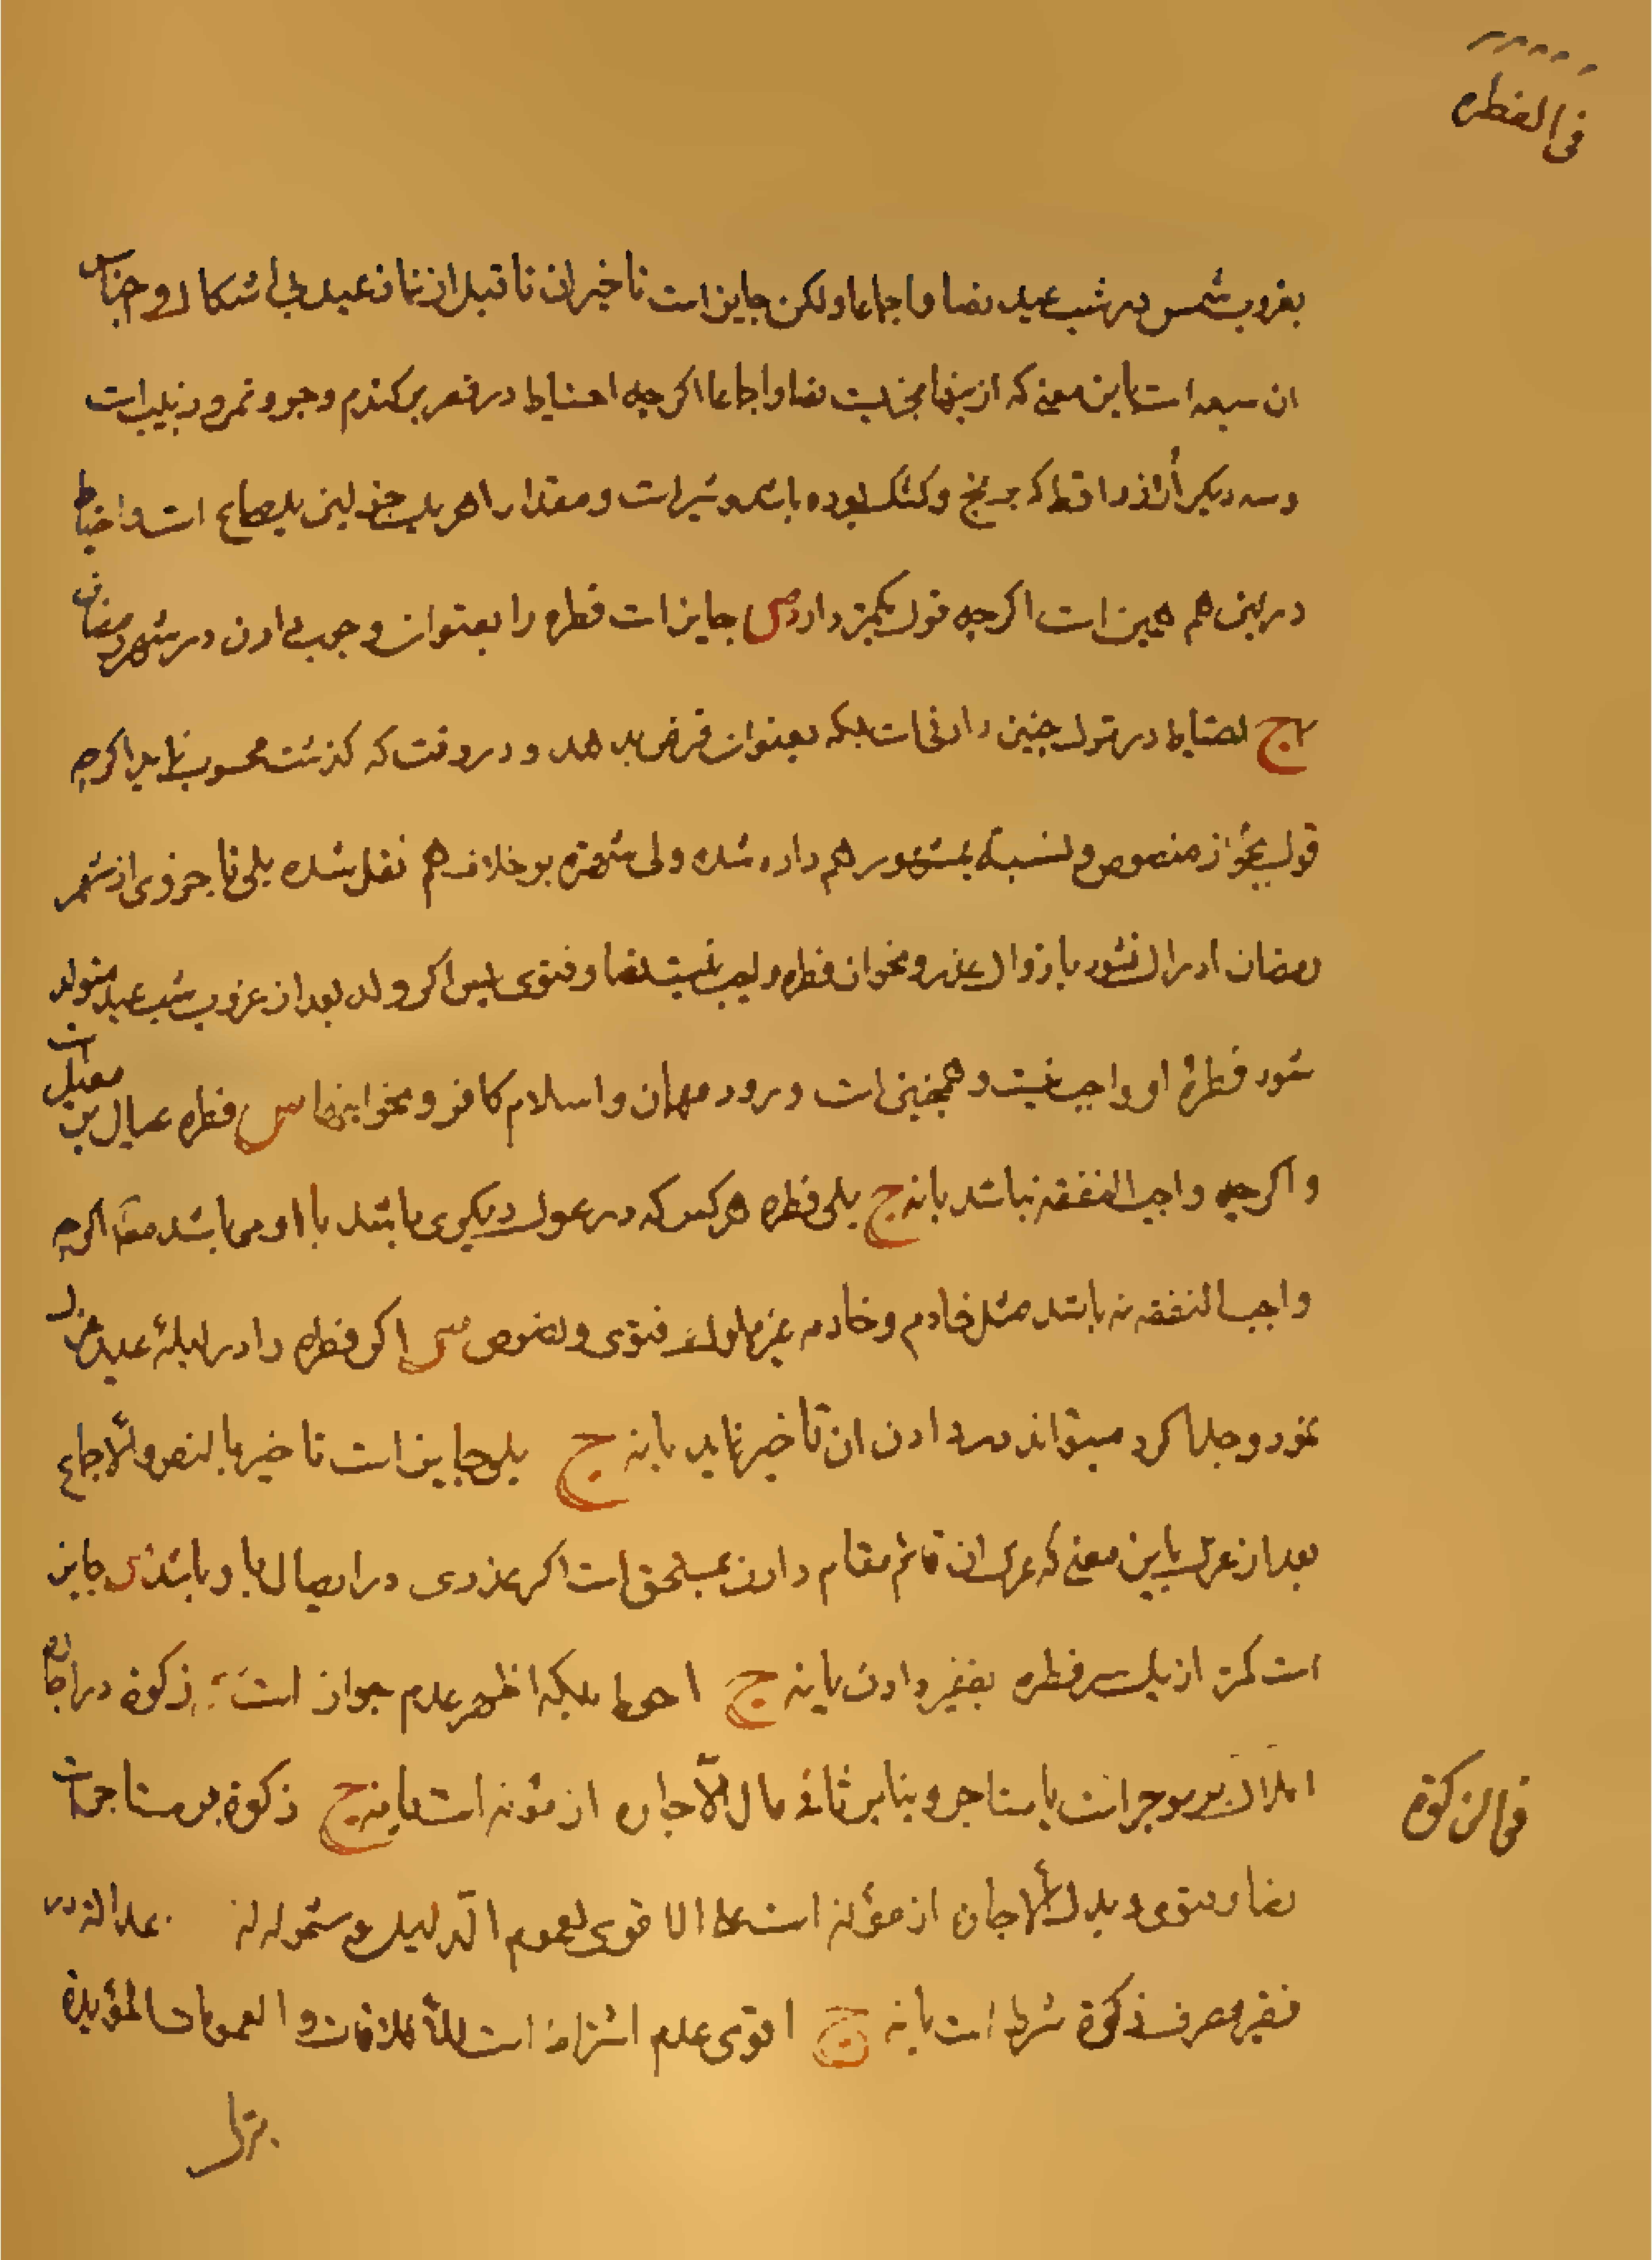 فی الفطره
بغروب شمس در شب عید نصا و اجماعا ولکن جایز است تاخیر ان تا قبل از نماز عید بلی اشکال و اجناس
ان سبعه است باین معنی که از اینها مجزیست نصا و اجماعا اکرچه احتیاط در قصر بر کندم و جو و تمر و زبیب است
و سه دیکر أرز و اقط که برنج و کشک بوده باشد و شیر است و مقدار هر یک حتی لبن یکصاع است و احتیاط
در لبن هم همین است اکرچه قول بکمتر دارد س جایز است فطره را بعنوان وجوب دادن در شهر رمضان
ج احتیاط در ترک چنین دادنی است بلکه بعنوان قرض بدهد و در وقت که کذشت محسوب نماید اکرچه
قول بجواز منصوص و نسبة بمشهور هم داده شده ولی شهرة بر خلاف هم نقل شده بلی تا جزوی از شهر
رمضان ادراک نشود با زوال عذر و نحو ان فطره واجب نیست نصا و فتوی پس اکر ولد بعد از غروب شب عید متولد
شود فطرۀ او واجب نیست و همچنین است ورود مهمان و اسلام کافر و نحو اینها س فطره عیال بر معیل است
و اکرچه واجب النفقه نباشد یا نه ج بلی فطره هر کس که در عول دیکری باشد با او می باشد اکرچه
واجب النفقه نه باشد مثل خادم و خادمه غیر مملوک فتوی و نصوص س اکر فطره را در لیلۀ عید عزل
نمود و جدا کرد میتواند در دادن ان تأخیر نماید یا نه ج بلی جایز است تاخیر بالنص و الأجماع
بعد از عزل باین معنی که عزل ان قائم مقام دادن بمستحق است اکر عذری در ایصال باو باشد س جایز
است کمتر از یک سر فطره بفقیر دادن یا نه ج احوط بلکه اظهر عدم جواز است س زکوة در اجاره
املاک بر موجر است یا مستاجر و بنابر ثانی مال الأجاره از مؤنه است یا نه ج زکوة بر مستاجر است
فی الزکوة
نصا و فتوی و بدل الأجاره از مؤنه است علی الاقوی لعموم الدلیل و شموله له عدالة در
فقیر مصرف زکوة شرط است یا نه ج اقوی عدم اشتراط است للأطلاقات و العمومات المؤیدة